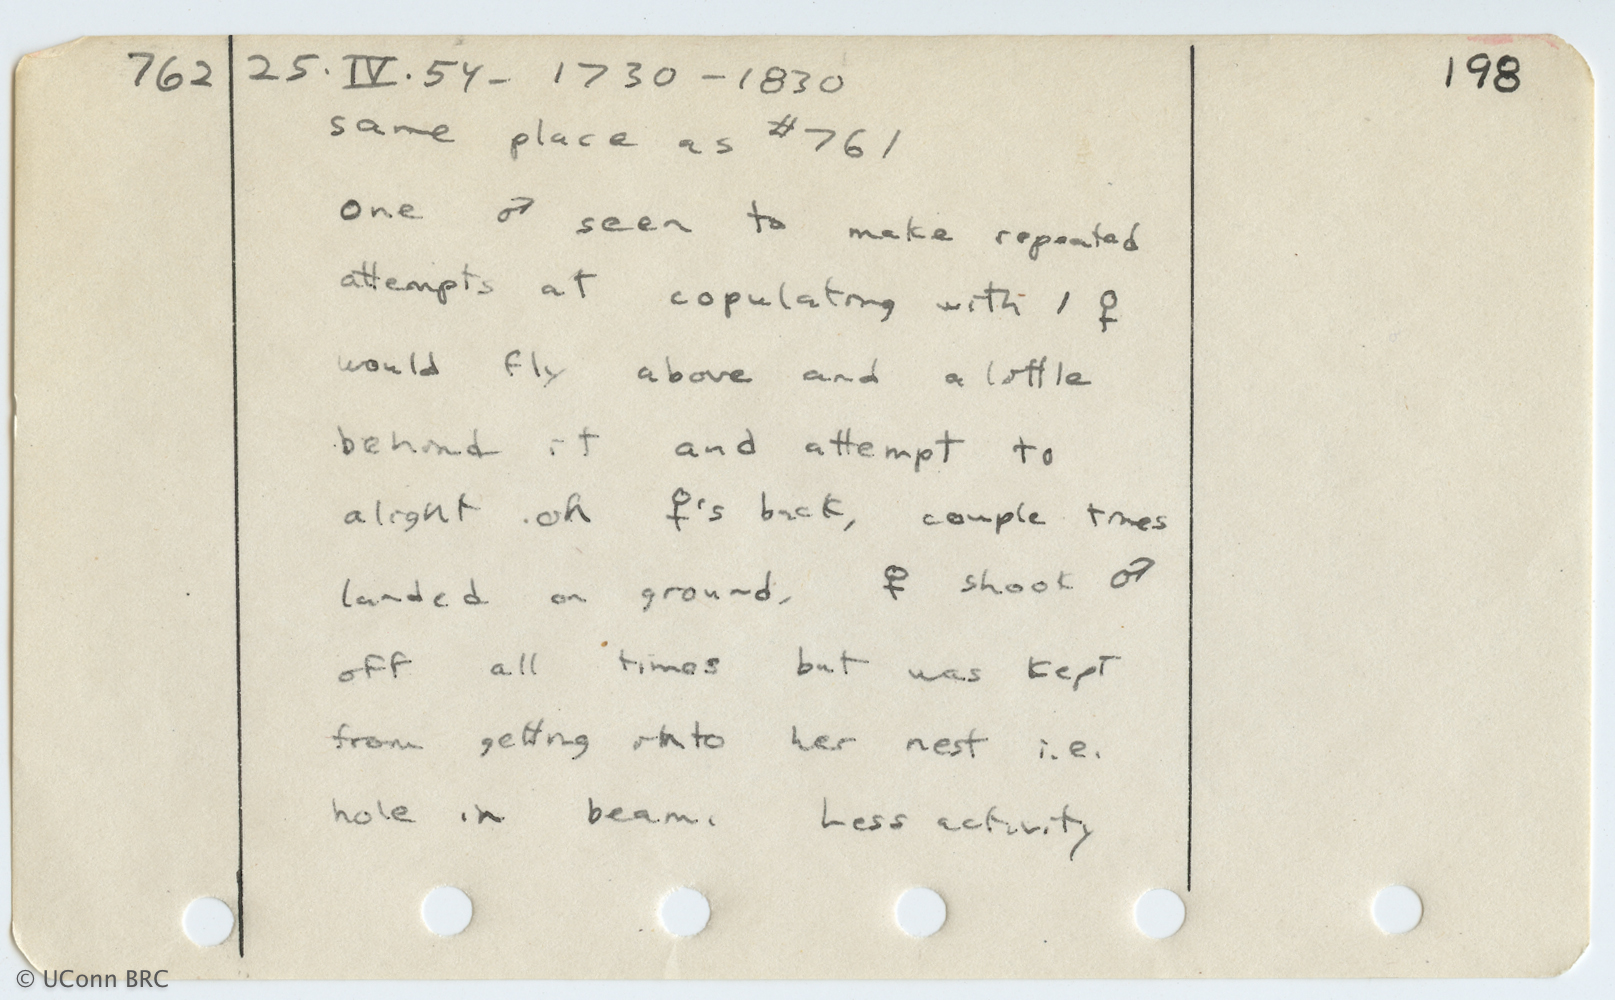 762 25.IV.54- 1730-1830 198
same place as #761
one ♂ seen to make repeated
attempts at copulating with 1 ♀
would fly above and a little
behind it and attempt to
alight on ♀'s back, couple times
landed on ground, ♀ shook ♂
off all times but was kept
from getting into her nest i.e.
hole in beam. Less activity
© UConn BRC